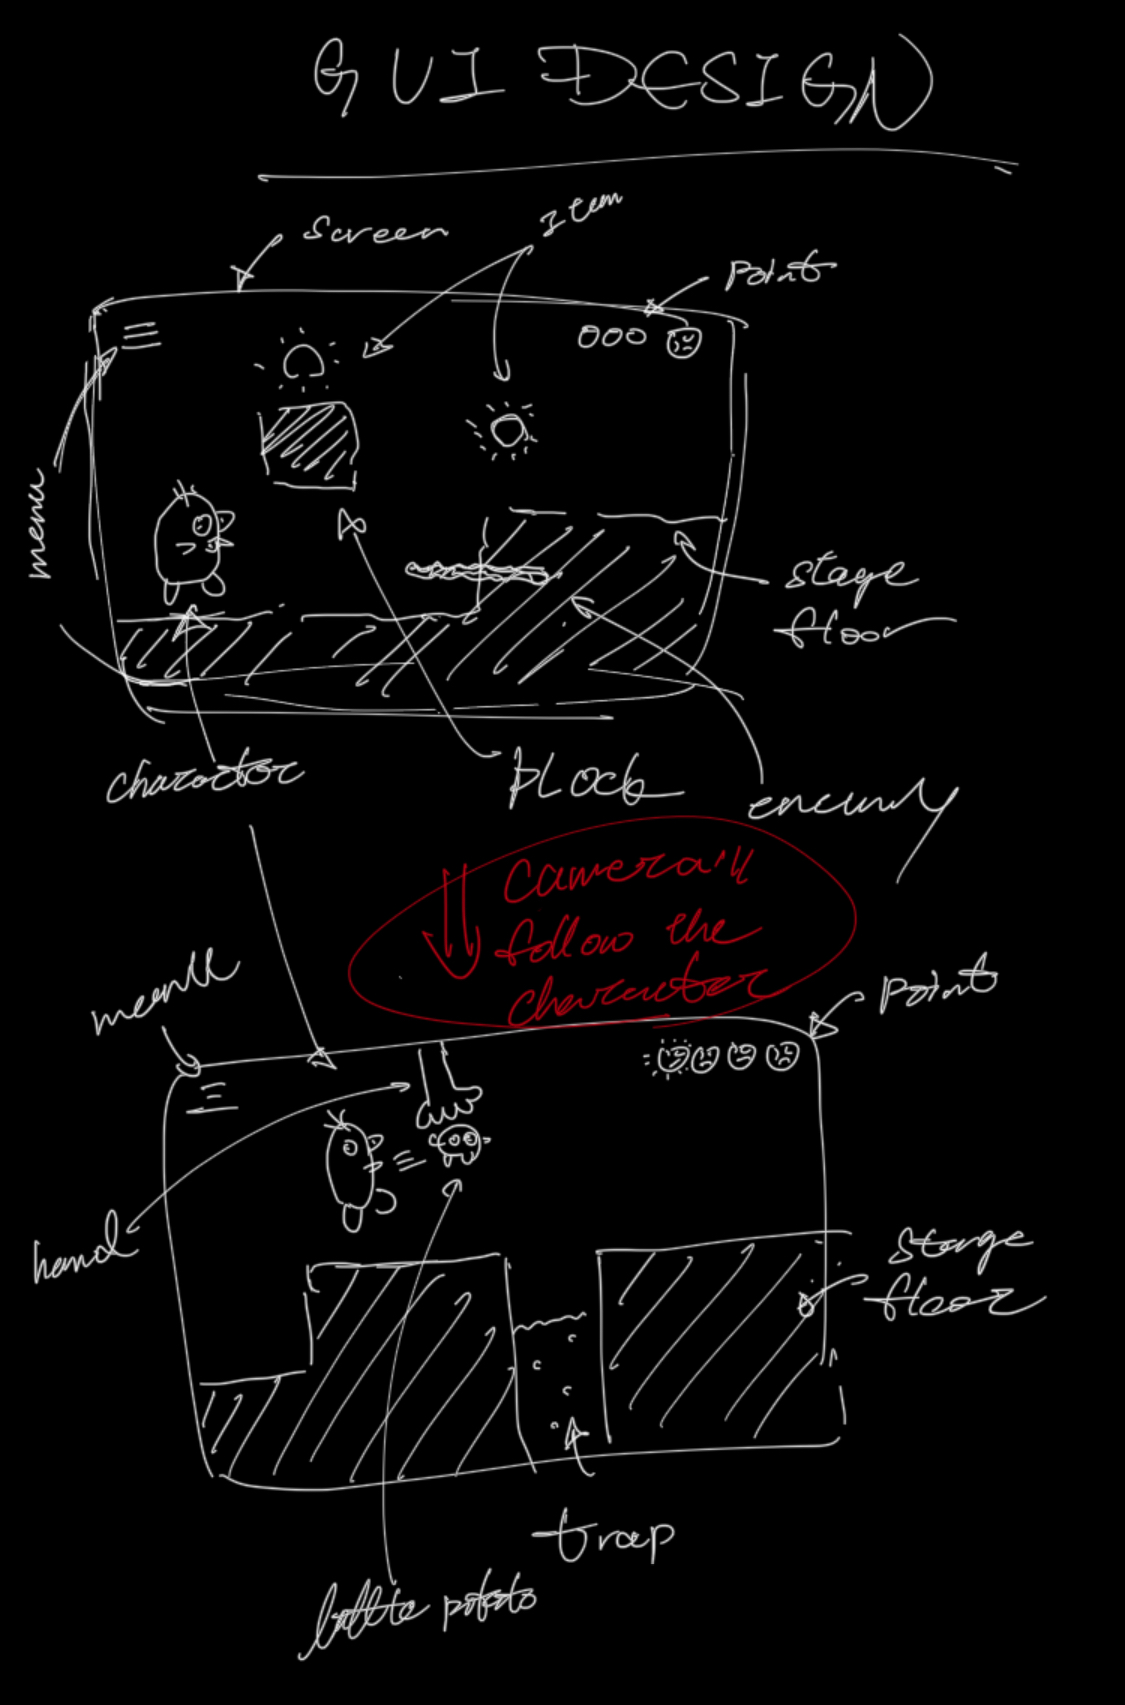 GUI DESIGN
screen
Item
Point
menu
stage
floor
charactor
bLock
Camera'll
follow the
character
Point
hand
Starge
floor
trap
little potato